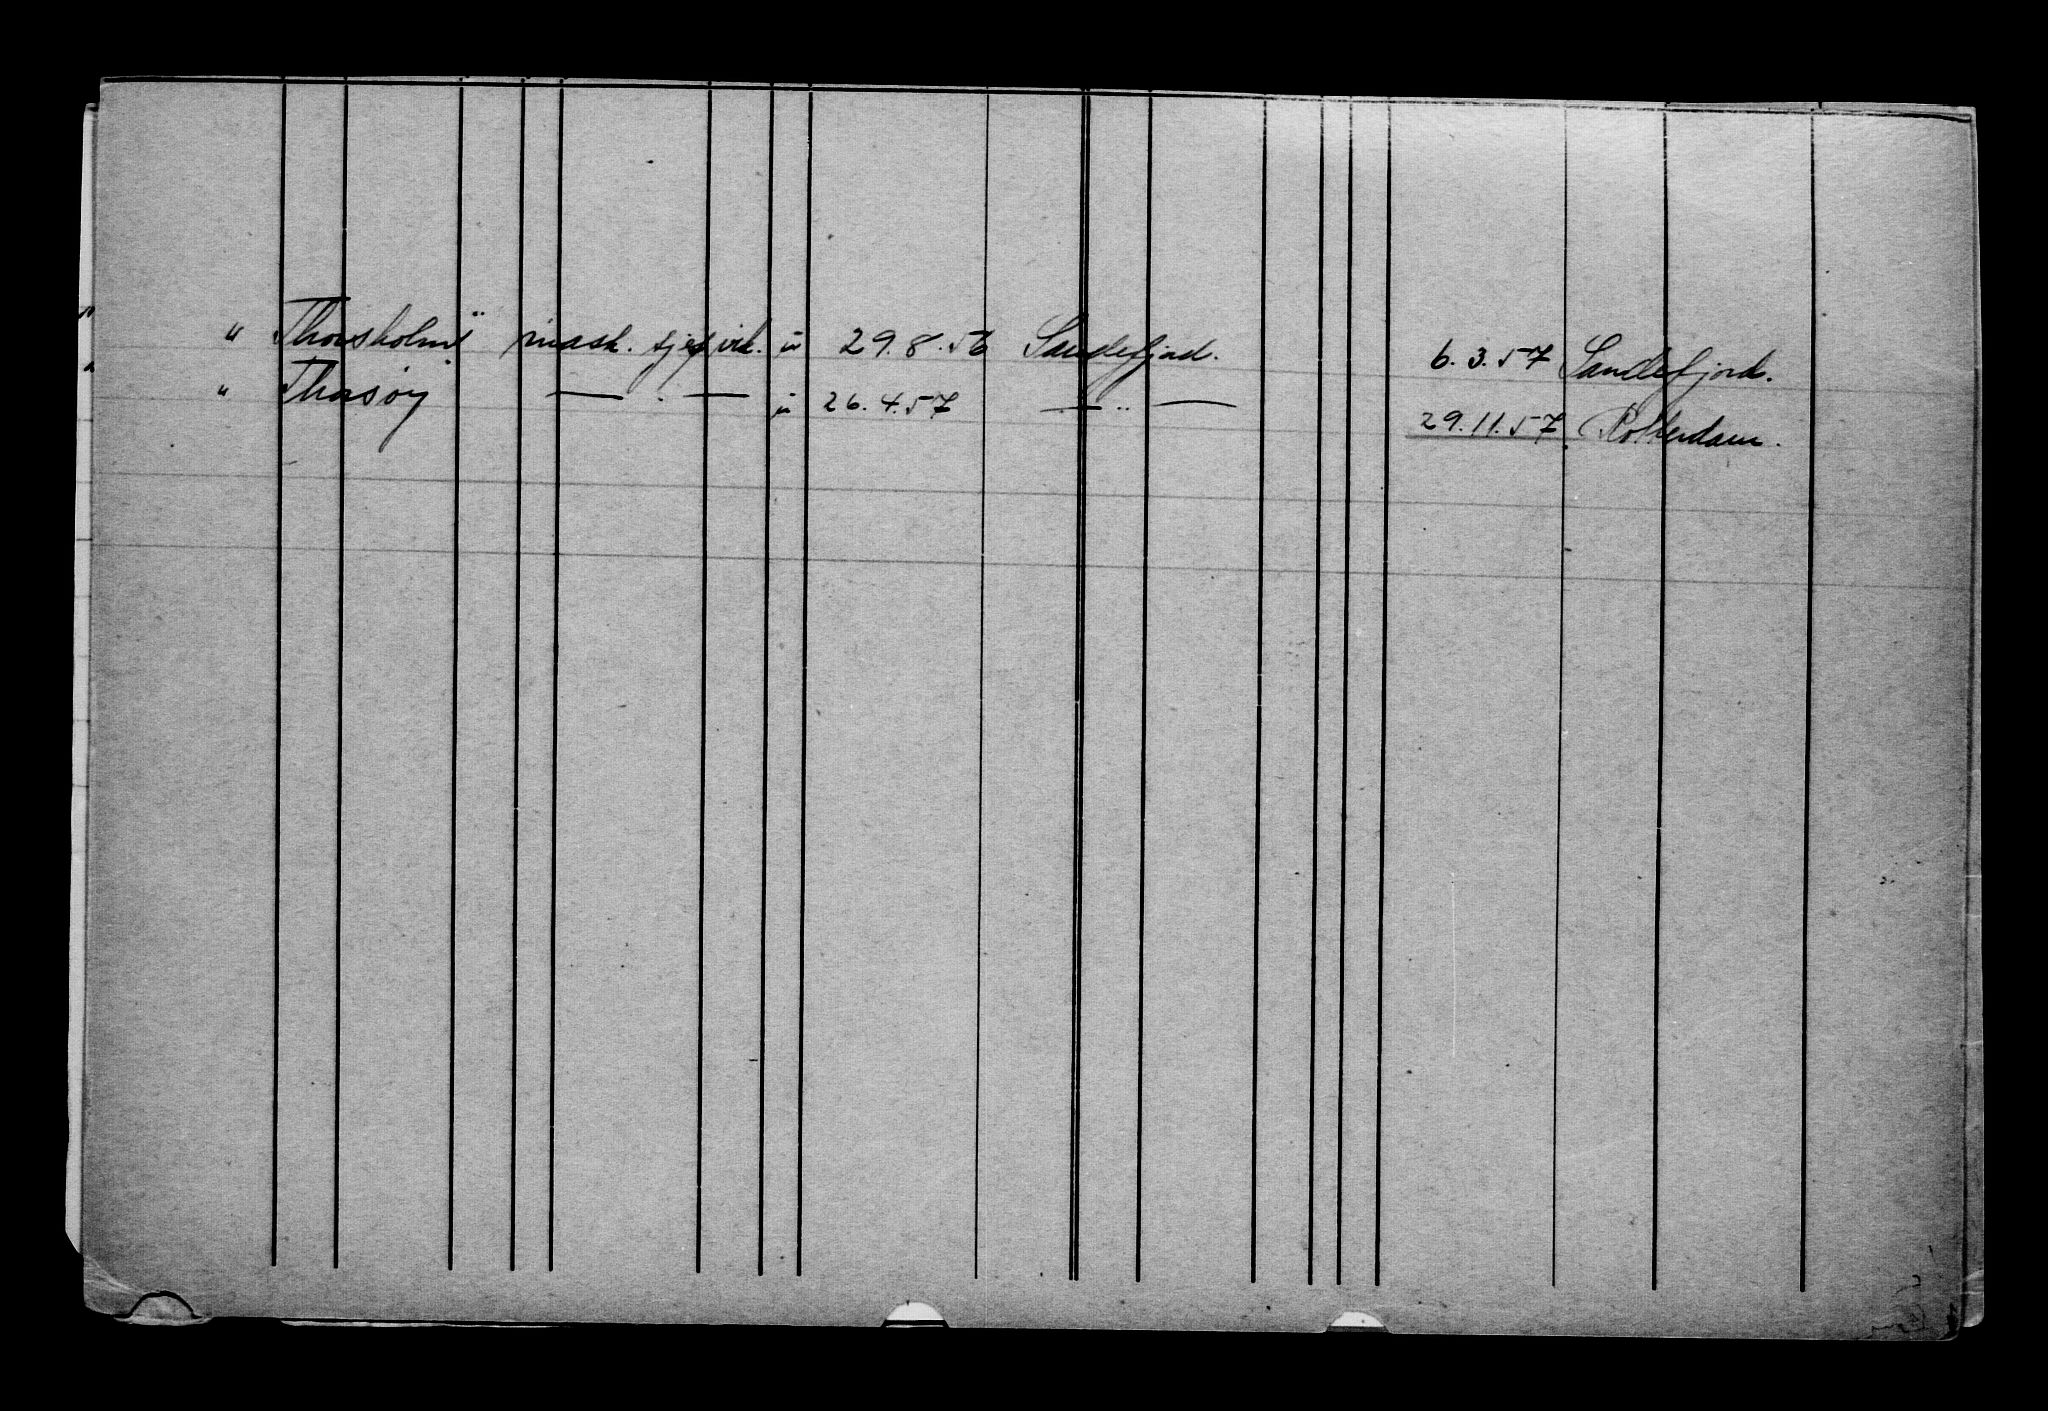 " Thorsholm" mask. sjef vik. u 29.8.56 Sandefjord. 6.3.57 Sandefjord.
" Thorsøy" — " — u 26.4.57 — " — 29.11.57 Rotterdam.